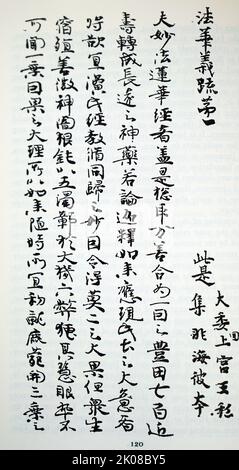 法華義疏第一
此是
大委国上宮王私
集非海彼本
夫妙法蓮華経者蓋是惣取万善合為一因之豊田七百近
壽轉成長遠之神藥若論迦釋如来應現此土之大意者
将欲宜演此経教脩同歸之妙因令得莫二之大果但衆生
宿殖善微神闇根鈍以五濁鄣於大機六弊掩其慧眼卒不
可聞一乗因果之大理所以如来随時所宜初就鹿苑開三乗之
120
alamy - 2K08BY5